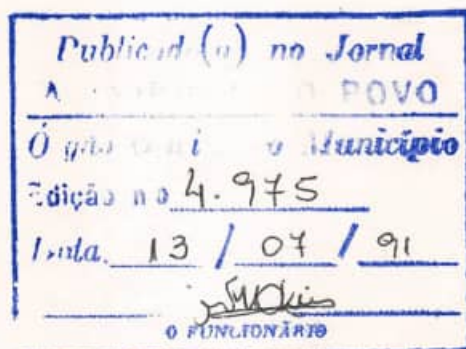 Publicado(a) no Jornal
A POVO
o Município
Edição no 4.975
Data. 13 / 07 / 91
O FUNCIONÁRIO